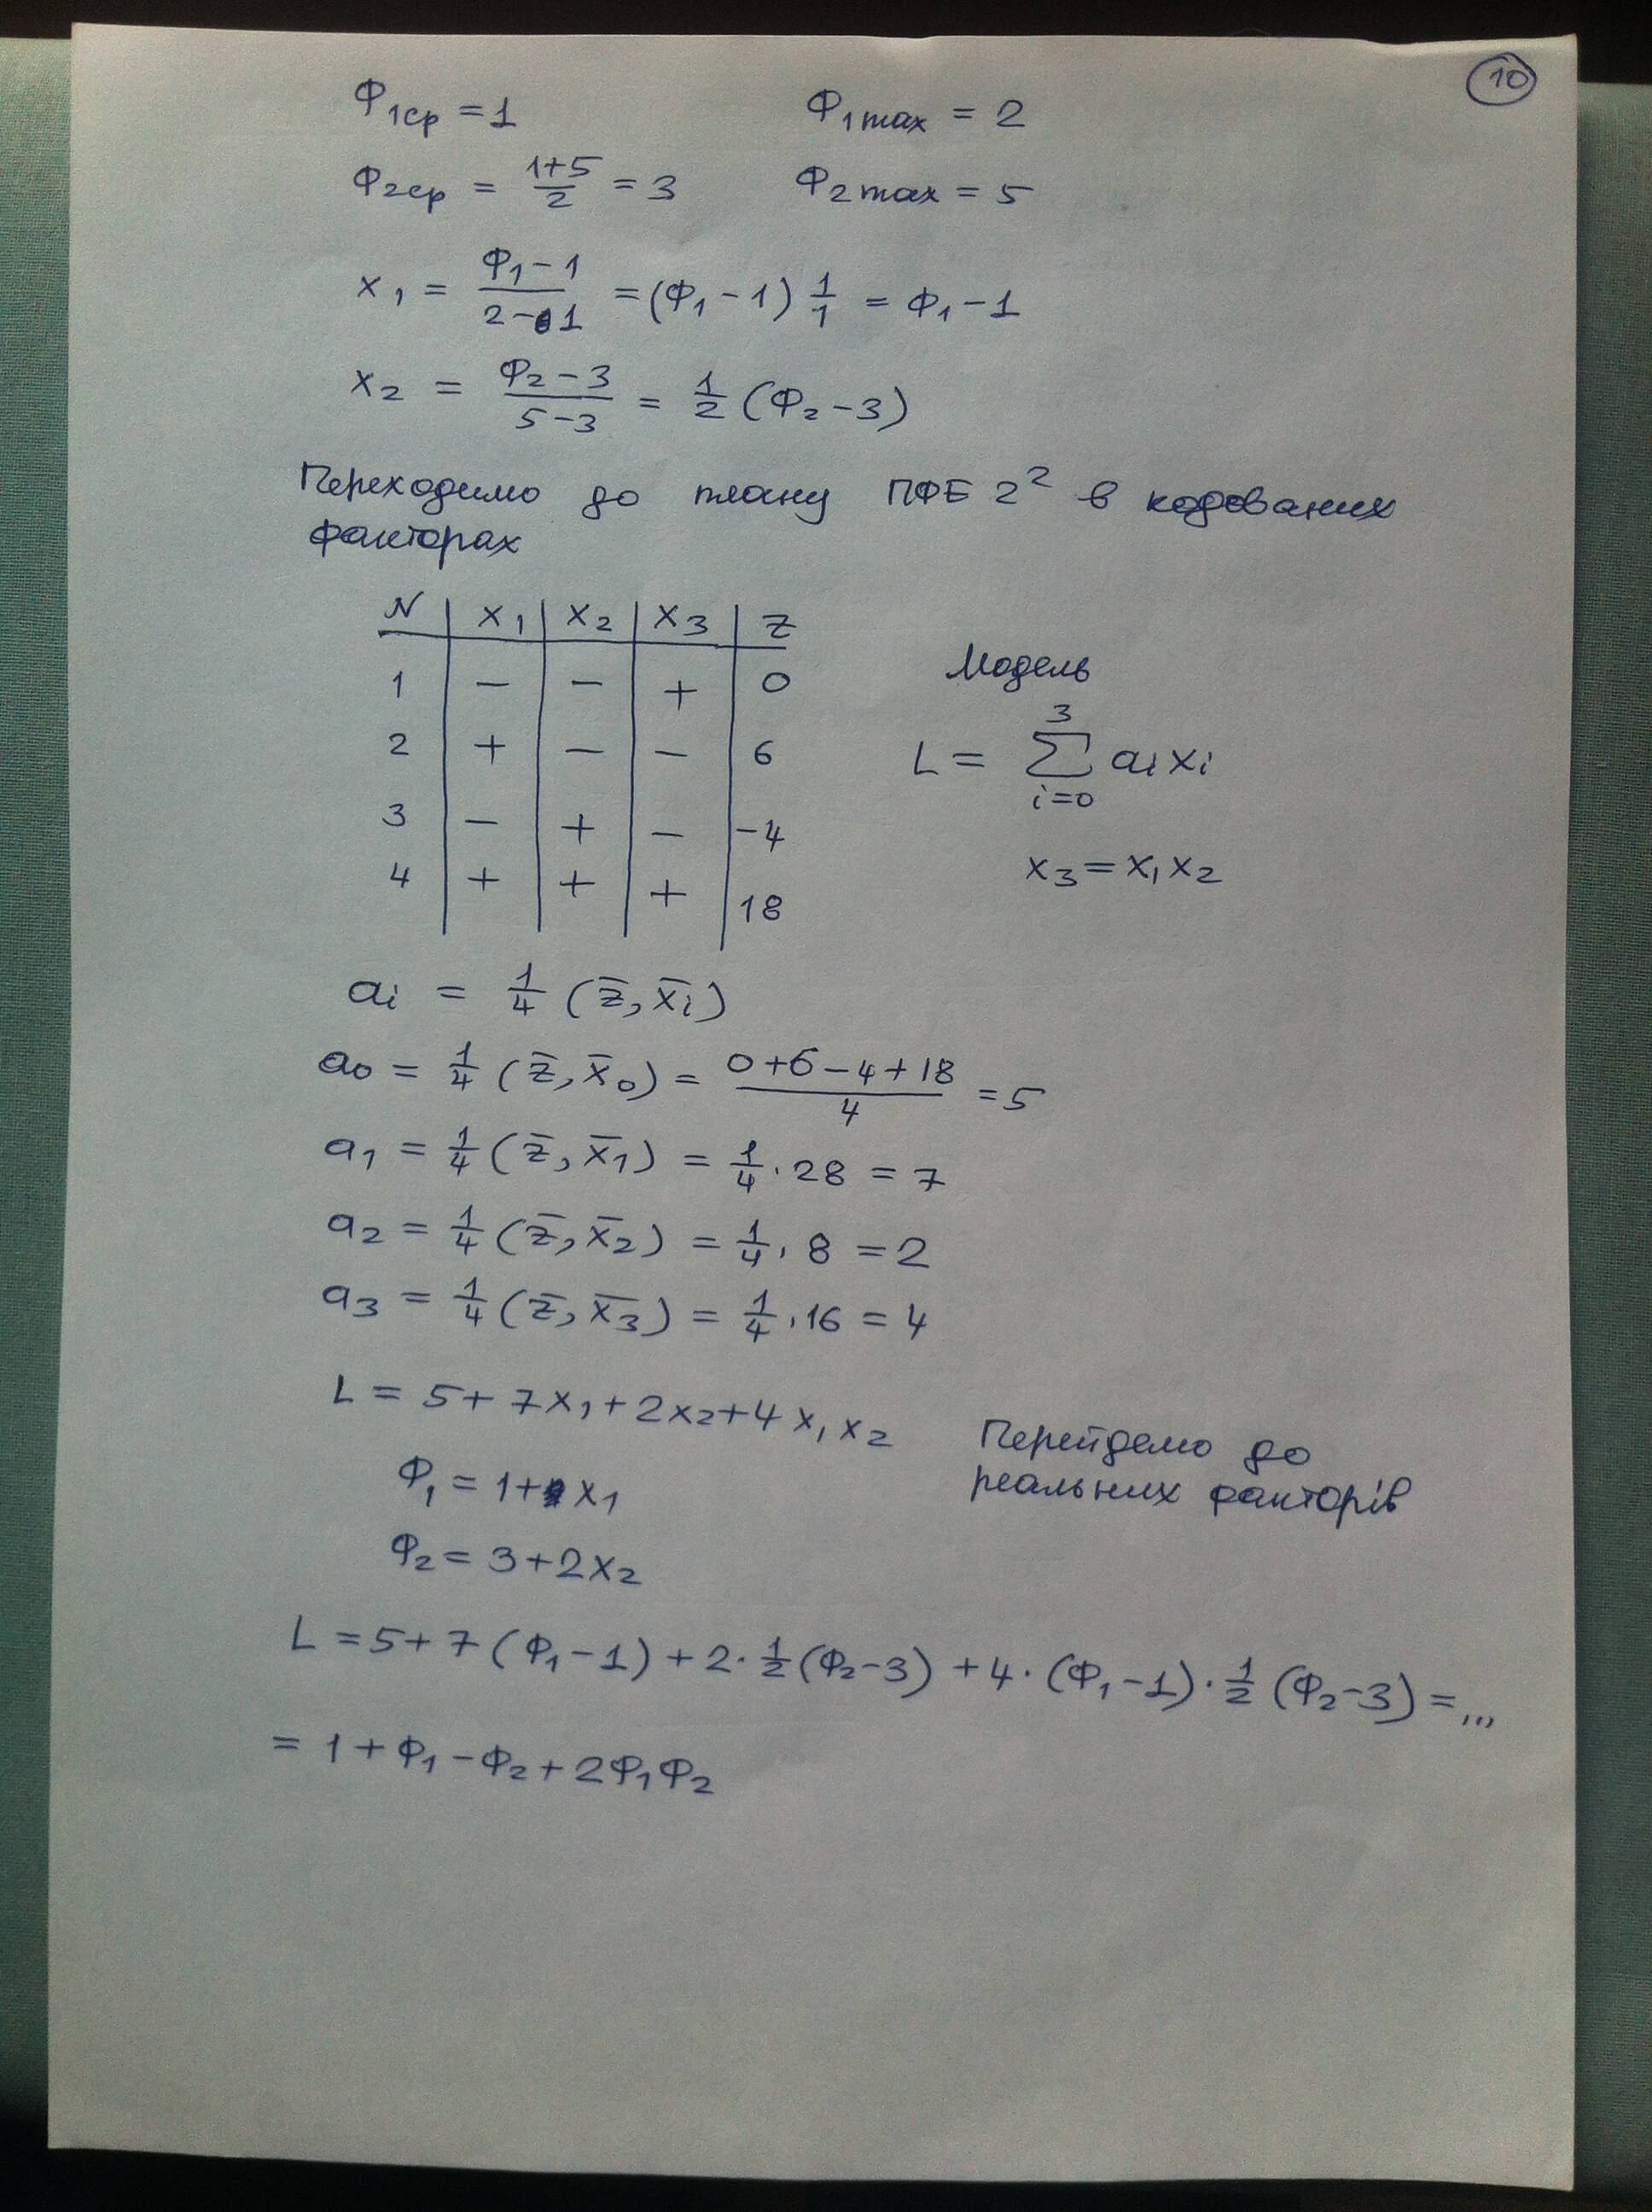 10
Ф1ср = 1 Ф1max = 2
Ф2ср = (1+5)/2 = 3 Ф2max = 5
x1 = (Ф1 − 1)/(2 − 1) = (Ф1 − 1) 1/1 = Ф1 − 1
x2 = (Ф2 − 3)/(5 − 3) = 1/2 (Ф2 − 3)
Переходимо до плану ПФЕ 2² в кодованих
факторах
N | x1 | x2 | x3 | z
1 | − | − | + | 0
2 | + | − | − | 6
3 | − | + | − | −4
4 | + | + | + | 18
Модель
L = ∑_{i=0}^{3} ai xi
x3 = x1 x2
ai = 1/4 (z̄, x̄i)
a0 = 1/4 (z̄, x̄0) = (0+6−4+18)/4 = 5
a1 = 1/4 (z̄, x̄1) = 1/4 · 28 = 7
a2 = 1/4 (z̄, x̄2) = 1/4 · 8 = 2
a3 = 1/4 (z̄, x̄3) = 1/4 · 16 = 4
L = 5 + 7x1 + 2x2 + 4x1x2
Перейдемо до
реальних факторів
Ф1 = 1 + x1
Ф2 = 3 + 2x2
L = 5 + 7 (Ф1 − 1) + 2 · 1/2 (Ф2 − 3) + 4 · (Ф1 − 1) · 1/2 (Ф2 − 3) = ...
= 1 + Ф1 − Ф2 + 2Ф1Ф2